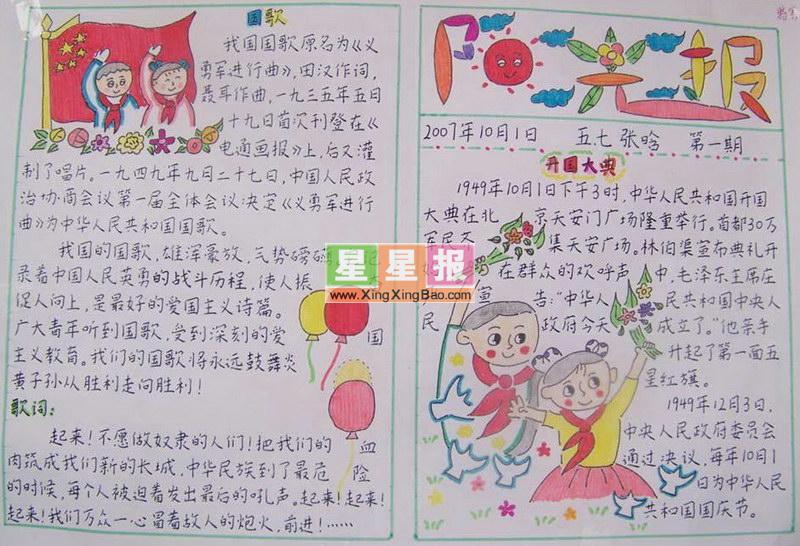 国歌
我国国歌原名为《义
勇军进行曲》，田汉作词，
聂耳作曲，一九三五年五日
十九日首次刊登在《
电通画报》上，后又灌
制了唱片。一九四九年九月二十七日，中国人民政
治协商会议第一届全体会议决定《义勇军进行
曲》为中华人民共和国国歌。
我国的国歌，雄浑豪放，气势磅礴
录着中国人民英勇的战斗历程，使人振
促人向上，是最好的爱国主义诗篇。
广大青年听到国歌，受到深刻的爱国
主义教育。我们的国歌将永远鼓舞炎
黄子孙从胜利走向胜利！
歌词：
起来！不愿做奴隶的人们！把我们的血
肉筑成我们新的长城，中华民族到了最危险
的时候，每个人被迫着发出最后的吼声。起来！起来！
起来！我们万众一心冒着敌人的炮火，前进！……
星星报
www.XingXingBao.com
阳光报
2007年10月1日 五七 张晗 第一期
开国大典
1949年10月1日下午3时，中华人民共和国开国
大典在北京天安门广场隆重举行。首都30万
军民齐集天安广场。林伯渠宣布典礼开
在群众的欢呼声中，毛泽东主席庄
宣告：“中华人民共和国中央人
民政府今天成立了。”他亲手
升起了第一面五
星红旗。
1949年12月3日，
中央人民政府委员会
通过决议，每年10月1
日为中华人民
共和国国庆节。